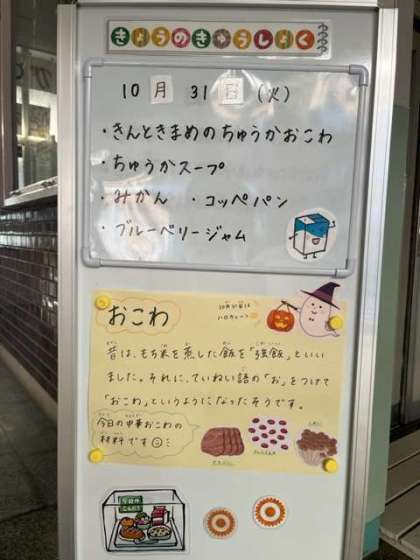 きょうのきゅうしょく
10月 31日 (火)
・きんときまめのちゅうかおこわ
・ちゅうかスープ
・みかん ・コッペパン
・ブルーベリージャム
おこわ
10月31日は
ハロウィーン
昔は、もち米を蒸した飯を「強飯」といい
ました。それに、ていねい語の「お」をつけて
「おこわ」というようになったそうです。
今日の中華おこわの
材料です